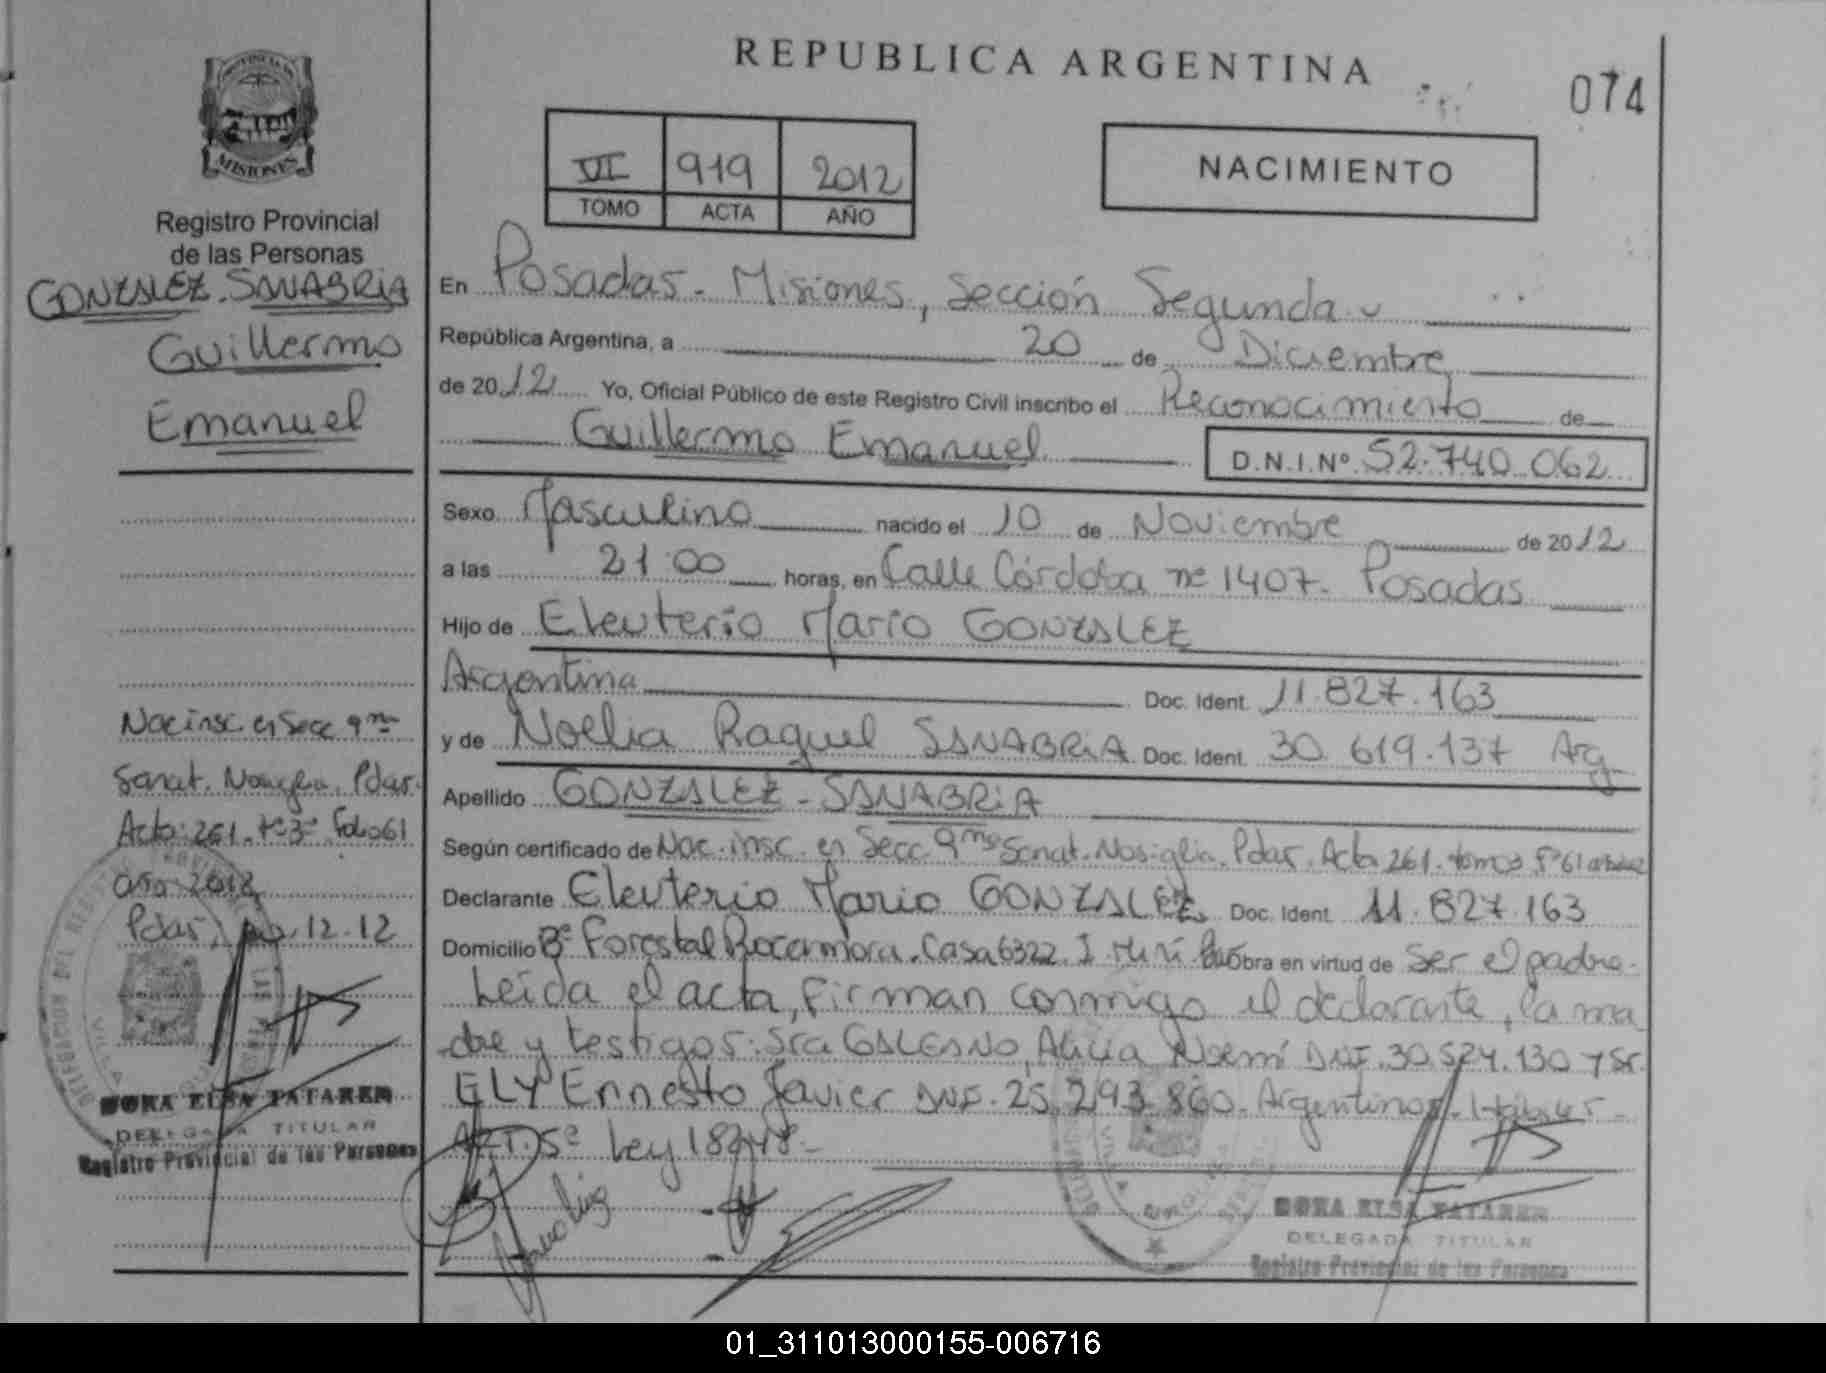 REPUBLICA ARGENTINA
074
PROVINCIA DE
MISIONES
Registro Provincial
de las Personas
GONZALEZ-SANABRIA
Guillermo
Emanuel
Nac insc. en Secc 9na
Sanat. Nosiglia, Pdas.
Acta: 261. tº3º folio 61
año 2012
Pdas, 12.12
DORA ELSA TATAREN
DELEGADA TITULAR
Registro Provincial de las Personas
VI 919 2012
TOMO ACTA AÑO
NACIMIENTO
En Posadas - Misiones, Sección Segunda
República Argentina, a 20 de Diciembre
de 2012 Yo, Oficial Público de este Registro Civil inscribo el Reconocimiento de
Guillermo Emanuel D.N.I.Nº 52.740.062
Sexo Masculino nacido el 10 de Noviembre de 2012
a las 21:00 horas, en Calle Córdoba nº 1407. Posadas
Hijo de Eleuterio Mario GONZALEZ
Argentina Doc. Ident. 11.827.163
y de Noelia Raquel SANABRIA Doc. Ident. 30.619.137 Arg
Apellido GONZALEZ - SANABRIA
Según certificado de Nac. insc. en Secc. 9na Sanat. Nosiglia. Pdas. Acta 261. tomo 3 Fº 61
Declarante Eleuterio Mario GONZALEZ Doc. Ident. 11.827.163
Domicilio Bº Forestal Rocamora. Casa 6322. I. Miní obra en virtud de ser el padre.
Leída el acta, firman conmigo el declarante, la ma
dre y testigos: Sra GALEANO, Alicia Noemí DNI. 30.524.130 y Sr.
ELY Ernesto Javier DNI. 25.293.860. Argentinos. Hábiles
ART. 5º Ley 18248.-
DORA ELSA TATAREN
DELEGADA TITULAR
Registro Provincial de las Personas
01_311013000155-006716